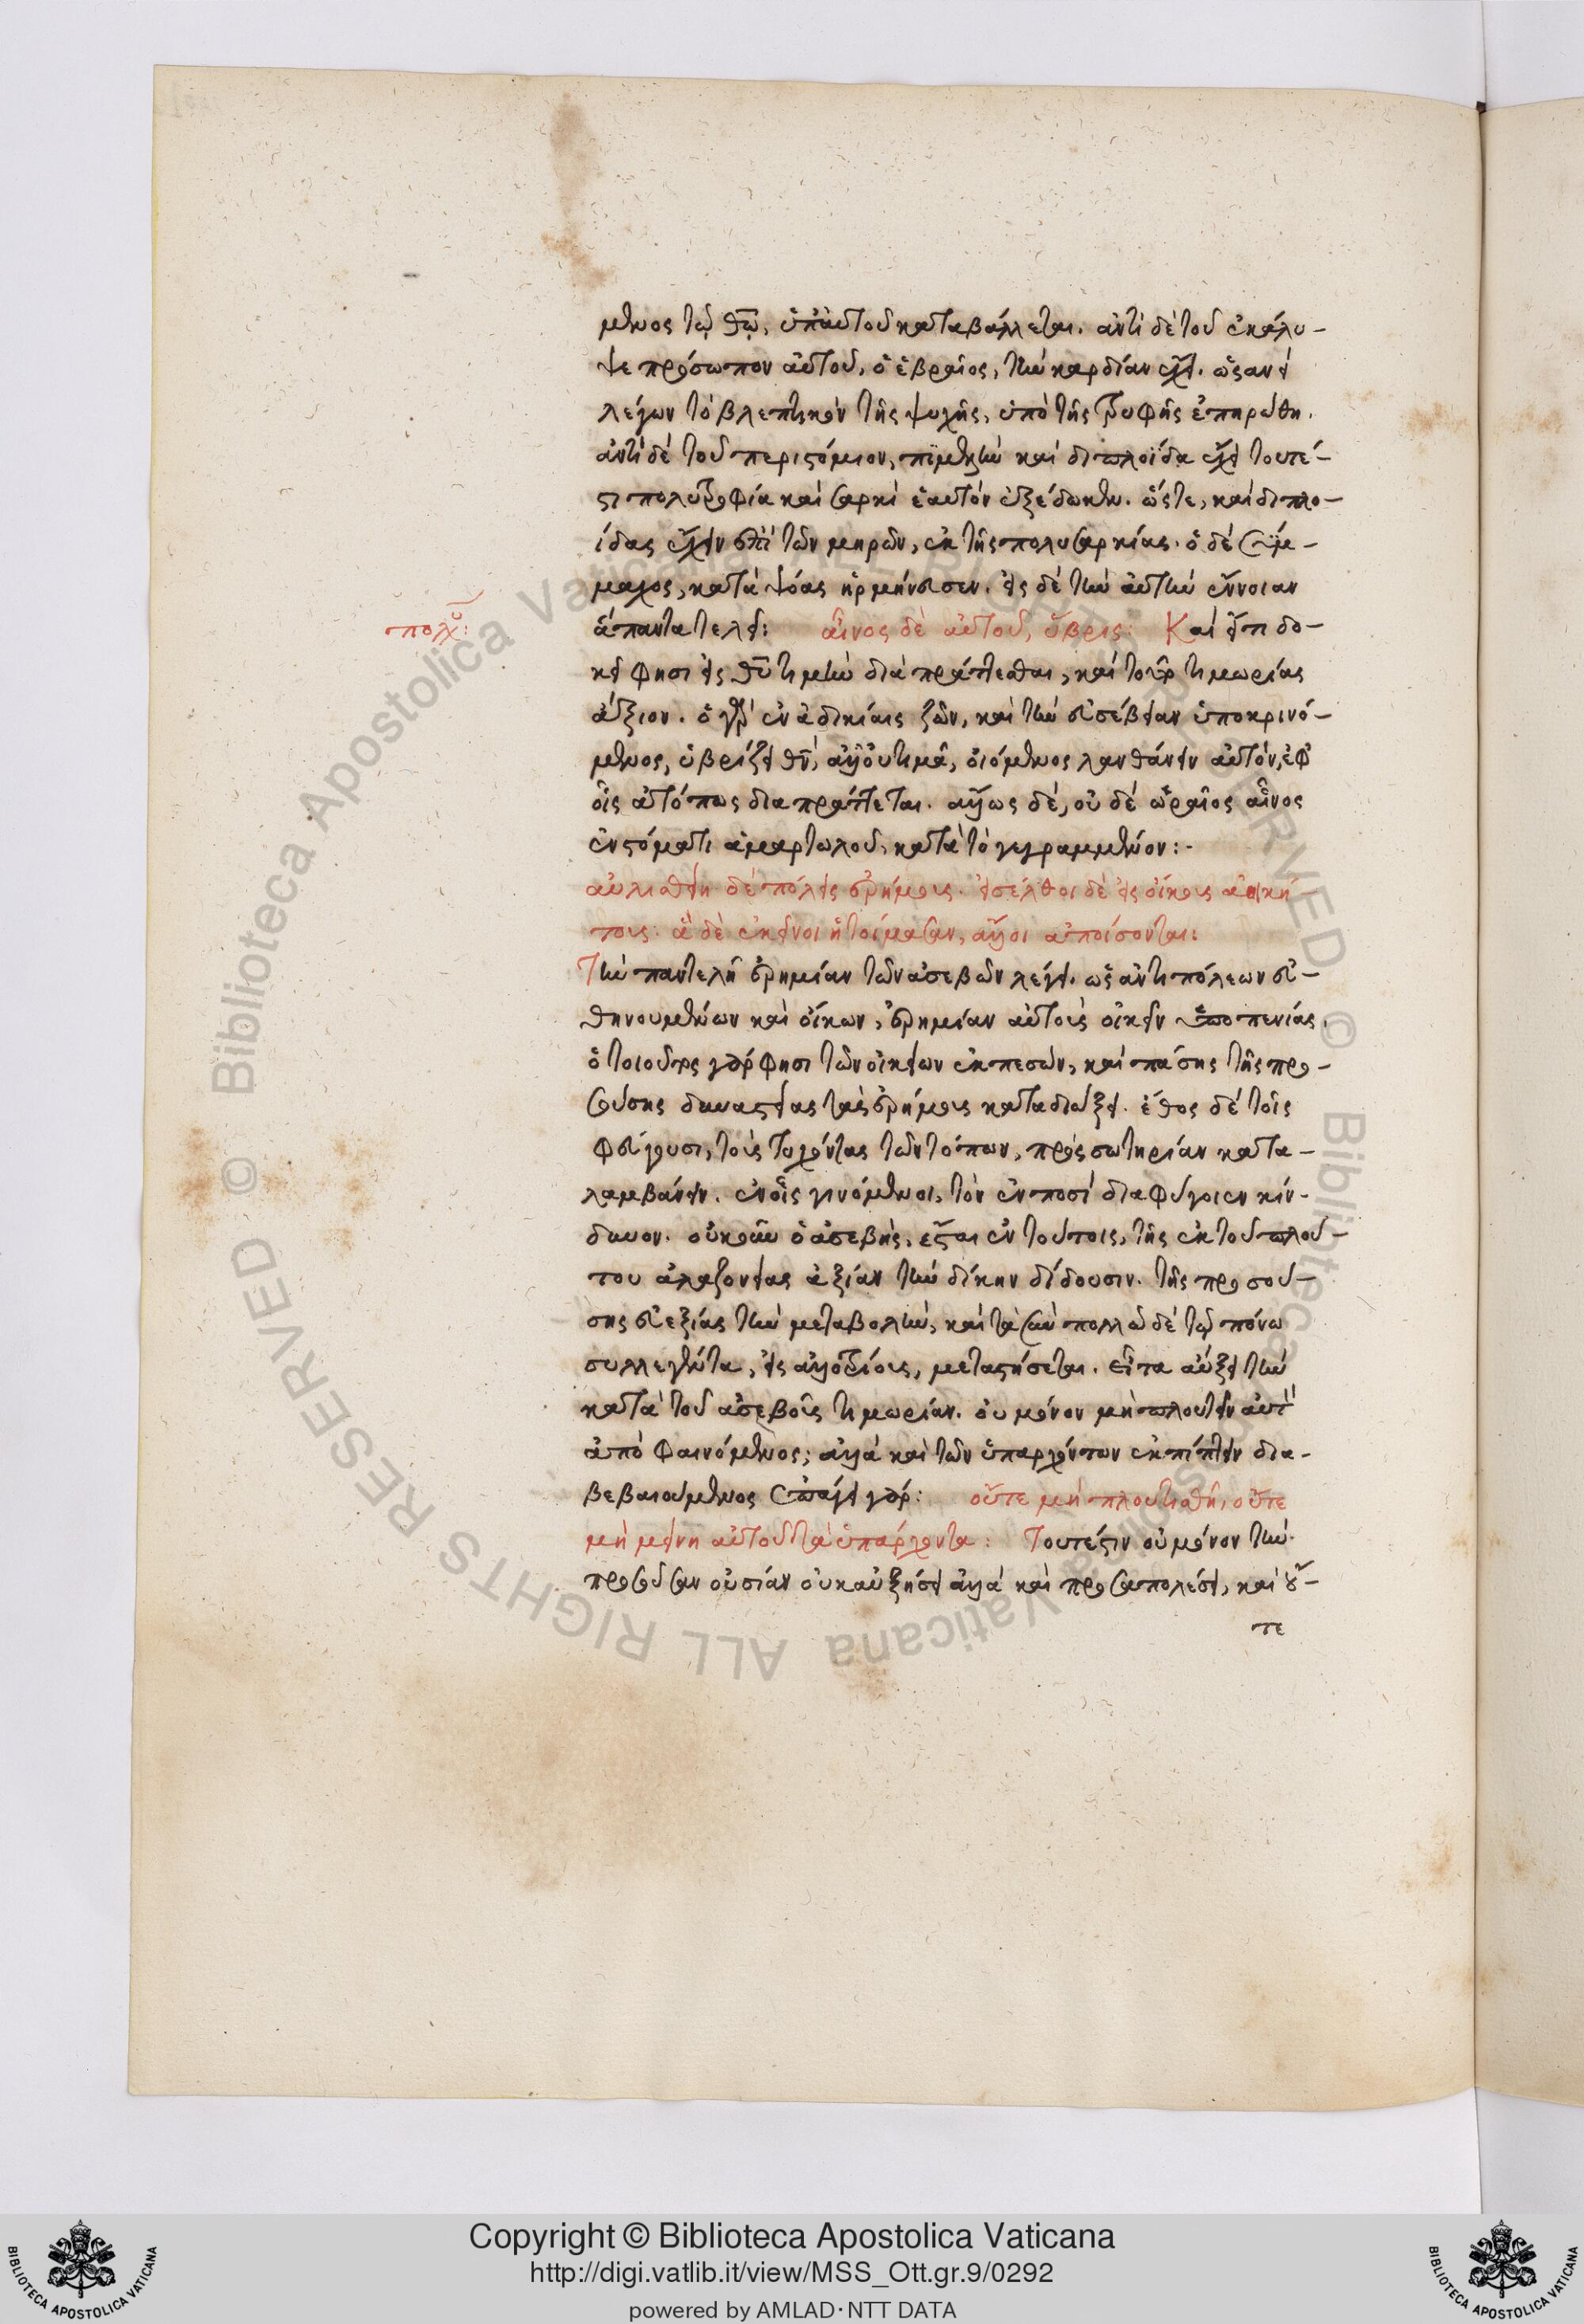 μενος τῷ θῶ, ὑπ' αὐτοῦ καταβάλλεται. ἀντὶ δὲ τοῦ ἐκάλυ-
ψε πρόσωπον αὐτοῦ, ὁ ἑβραῖος, τὴν καρδίαν ἔχει. ὡς ἂν εἰ
λέγων τὸ βλεπτικὸν τῆς ψυχῆς, ὑπὸ τῆς τρυφῆς ἐπηρώθη.
ἀντὶ δὲ τοῦ περιστόμιον, πϊμελὴν καὶ διπλοΐδα ἔχει τουτέ-
στι πολυτροφία καὶ σαρκὶ ἑαυτὸν ἐξέδωκεν. ὥστε, καὶ διπλο-
ίδας ἔχειν ἐπὶ τῶν μηρῶν, ἐκ τῆς πολυσαρκίας. ὁ δὲ Σύμ-
μαχος, κατὰ ψόας ἡρμήνευσεν. εἰς δὲ τὴν αὐτὴν ἔννοιαν
ἅπαντα τελεῖ: αἶνος δὲ αὐτοῦ, ὕβρις: Καὶ εἴ τι δο-
πολυχ:
κεῖ φησι εἰς θῦ τιμὴν διαπράττεσθαι, καὶ τοῦτο τιμωρίας
ἄξιον. ὁ γὰρ ἐν ἀδικίαις ζῶν, καὶ τὴν εὐσέβειαν ὑποκρινό-
μενος, ὑβρίζει θν, ἀλλ' οὐ τιμᾶ, οἰόμενος λανθάνειν αὐτόν, ἐφ'
οἷς ἀτόπως διαπράττεται. ἄλλως δὲ, οὐδὲ ὡραῖος αἶνος
ἐν στόματι ἁμαρτωλοῦ, κατὰ τὸ γεγραμμένον:-
αὐλισθείη δὲ πόλεις ἐρήμους. εἰσέλθοι δὲ εἰς οἴκους ἀοική-
τους. ἃ δὲ ἐκεῖνοι ἡτοίμασαν, ἄλλοι ἀποίσονται:
Τὴν παντελῆ ἐρημίαν τῶν ἀσεβῶν λέγει. ὡς ἀντὶ πόλεων εὐ-
θηνουμένων καὶ οἴκων, ἐρημίαν αὐτοὺς οἰκεῖν ὑπὸ πενίας.
ὁ τοιοῦτος γάρ φησι τῶν οἰκείων ἐκπεσὼν, καὶ πάσης τῆς προ-
σούσης δυναστείας τὰς ἐρήμους καταδιώξει. ἔθος δὲ τοῖς
φεύγουσι, τοὺς τυχόντας τῶν τόπων, πρὸς σωτηρίαν κατα-
λαμβάνειν. ἐν οἷς γινόμενοι, τὸν ἐν ποσὶ διαφύγοιεν κίν-
δυνον. οὐκοῦν ὁ ἀσεβὴς, ἔσται ἐν τούτοις, τῆς ἐκ τοῦ πλού-
του ἀλαζονείας ἀξίαν τὴν δίκην διδοῦσιν. τῆς προσού-
σης εὐεξίας τὴν μεταβολὴν, καὶ τὰ σὺν πολλῶ δὲ τῷ πόνω
συλλεγέντα, εἰς ἀλλοτρίους, μεταστήσεται. εἶτα αὔξει τὴν
κατὰ τοῦ ἀσεβοῦς τιμωρίαν. οὐ μόνον μὴ πλουτεῖν αὐτ
ἀποφαινόμενος; ἀλλὰ καὶ τῶν ὑπαρχόντων ἐκπίπτειν δια-
βεβαιούμενος ἐπάγει γάρ: οὔτε μὴ πλουτισθῆ, οὔτε
μὴ μείνη αὐτοῦ τὰ ὑπάρχοντα: Τουτέστιν οὐ μόνον τὴν
προσοῦσαν οὐσίαν οὐκ αὐξήσει ἀλλὰ καὶ προσαπολέσει, καὶ οὔ-
τε
Copyright © Biblioteca Apostolica Vaticana
http://digi.vatlib.it/view/MSS_Ott.gr.9/0292
powered by AMLAD·NTT DATA